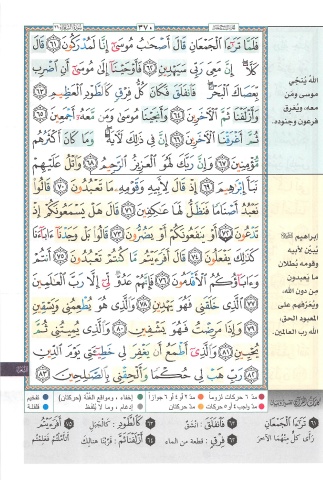 ٣٧٠
فَلَمَّا تَرَٰٓءَا ٱلْجَمْعَانِ قَالَ أَصْحَٰبُ مُوسَىٰٓ إِنَّا لَمُدْرَكُونَ ٦١ قَالَ
كَلَّآ إِنَّ مَعِىَ رَبِّى سَيَهْدِينِ ٦٢ فَأَوْحَيْنَآ إِلَىٰ مُوسَىٰٓ أَنِ ٱضْرِب
بِّعَصَاكَ ٱلْبَحْرَ فَٱنفَلَقَ فَكَانَ كُلُّ فِرْقٍ كَٱلطَّوْدِ ٱلْعَظِيمِ ٦٣
وَأَزْلَفْنَا ثَمَّ ٱلْءَاخَرِينَ ٦٤ وَأَنجَيْنَا مُوسَىٰ وَمَن مَّعَهُۥٓ أَجْمَعِينَ ٦٥
ثُمَّ أَغْرَقْنَا ٱلْءَاخَرِينَ ٦٦ إِنَّ فِى ذَٰلِكَ لَءَايَةً وَمَا كَانَ أَكْثَرُهُم
مُّؤْمِنِينَ ٦٧ وَإِنَّ رَبَّكَ لَهُوَ ٱلْعَزِيزُ ٱلرَّحِيمُ ٦٨ وَٱتْلُ عَلَيْهِمْ
نَبَأَ إِبْرَٰهِيمَ ٦٩ إِذْ قَالَ لِأَبِيهِ وَقَوْمِهِۦ مَا تَعْبُدُونَ ٧٠ قَالُوا۟
نَعْبُدُ أَصْنَامًا فَنَظَلُّ لَهَا عَٰكِفِينَ ٧١ قَالَ هَلْ يَسْمَعُونَكُمْ إِذْ
تَدْعُونَ ٧٢ أَوْ يَنفَعُونَكُمْ أَوْ يَضُرُّونَ ٧٣ قَالُوا۟ بَلْ وَجَدْنَآ ءَابَآءَنَا
كَذَٰلِكَ يَفْعَلُونَ ٧٤ قَالَ أَفَرَءَيْتُم مَّا كُنتُمْ تَعْبُدُونَ ٧٥ أَنتُمْ
وَءَابَآؤُكُمُ ٱلْأَقْدَمُونَ ٧٦ فَإِنَّهُمْ عَدُوٌّ لِّىٓ إِلَّا رَبَّ ٱلْعَٰلَمِينَ
٧٧ ٱلَّذِى خَلَقَنِى فَهُوَ يَهْدِينِ ٧٨ وَٱلَّذِى هُوَ يُطْعِمُنِى وَيَسْقِينِ
٧٩ وَإِذَا مَرِضْتُ فَهُوَ يَشْفِينِ ٨٠ وَٱلَّذِى يُمِيتُنِى ثُمَّ
يُحْيِينِ ٨١ وَٱلَّذِىٓ أَطْمَعُ أَن يَغْفِرَ لِى خَطِيٓـَٔتِى يَوْمَ ٱلدِّينِ
٨٢ رَبِّ هَبْ لِى حُكْمًا وَأَلْحِقْنِى بِٱلصَّٰلِحِينَ ٨٣
الله يُنجّي
موسى ومَن
معه، ويُغرق
فرعون وجنوده.
إبراهيم
يُبيّن لأبيه
وقومه بُطلان
ما يعبدون
من دون الله،
ويُعرّفهم على
المعبود الحق،
الله رب العالمين.
مدّ ٦ حركات لزوماً مدّ ٢ أو ٤ أو ٦ جوازاً إخفاء، ومواقع الغُنَّة (حركتان) تفخيم
مدّ واجب ٤ أو ٥ حركات مدّ حركتان إدغام، وما لا يُلفَظ قلقلة
٦١ تَرَٰٓءَا ٱلْجَمْعَانِ
رَأى كلٌّ منهُما الآخرَ
٦٣ فَٱنفَلَقَ: انشَقَّ
٦٣ فِرْقٍ: قطعة من الماء
٦٣ كَٱلطَّوْدِ: كالجَبَلِ
٦٤ أَزْلَفْنَا ثَمَّ: قَرَّبْنا هنالك
٧٥ أَفَرَءَيْتُم